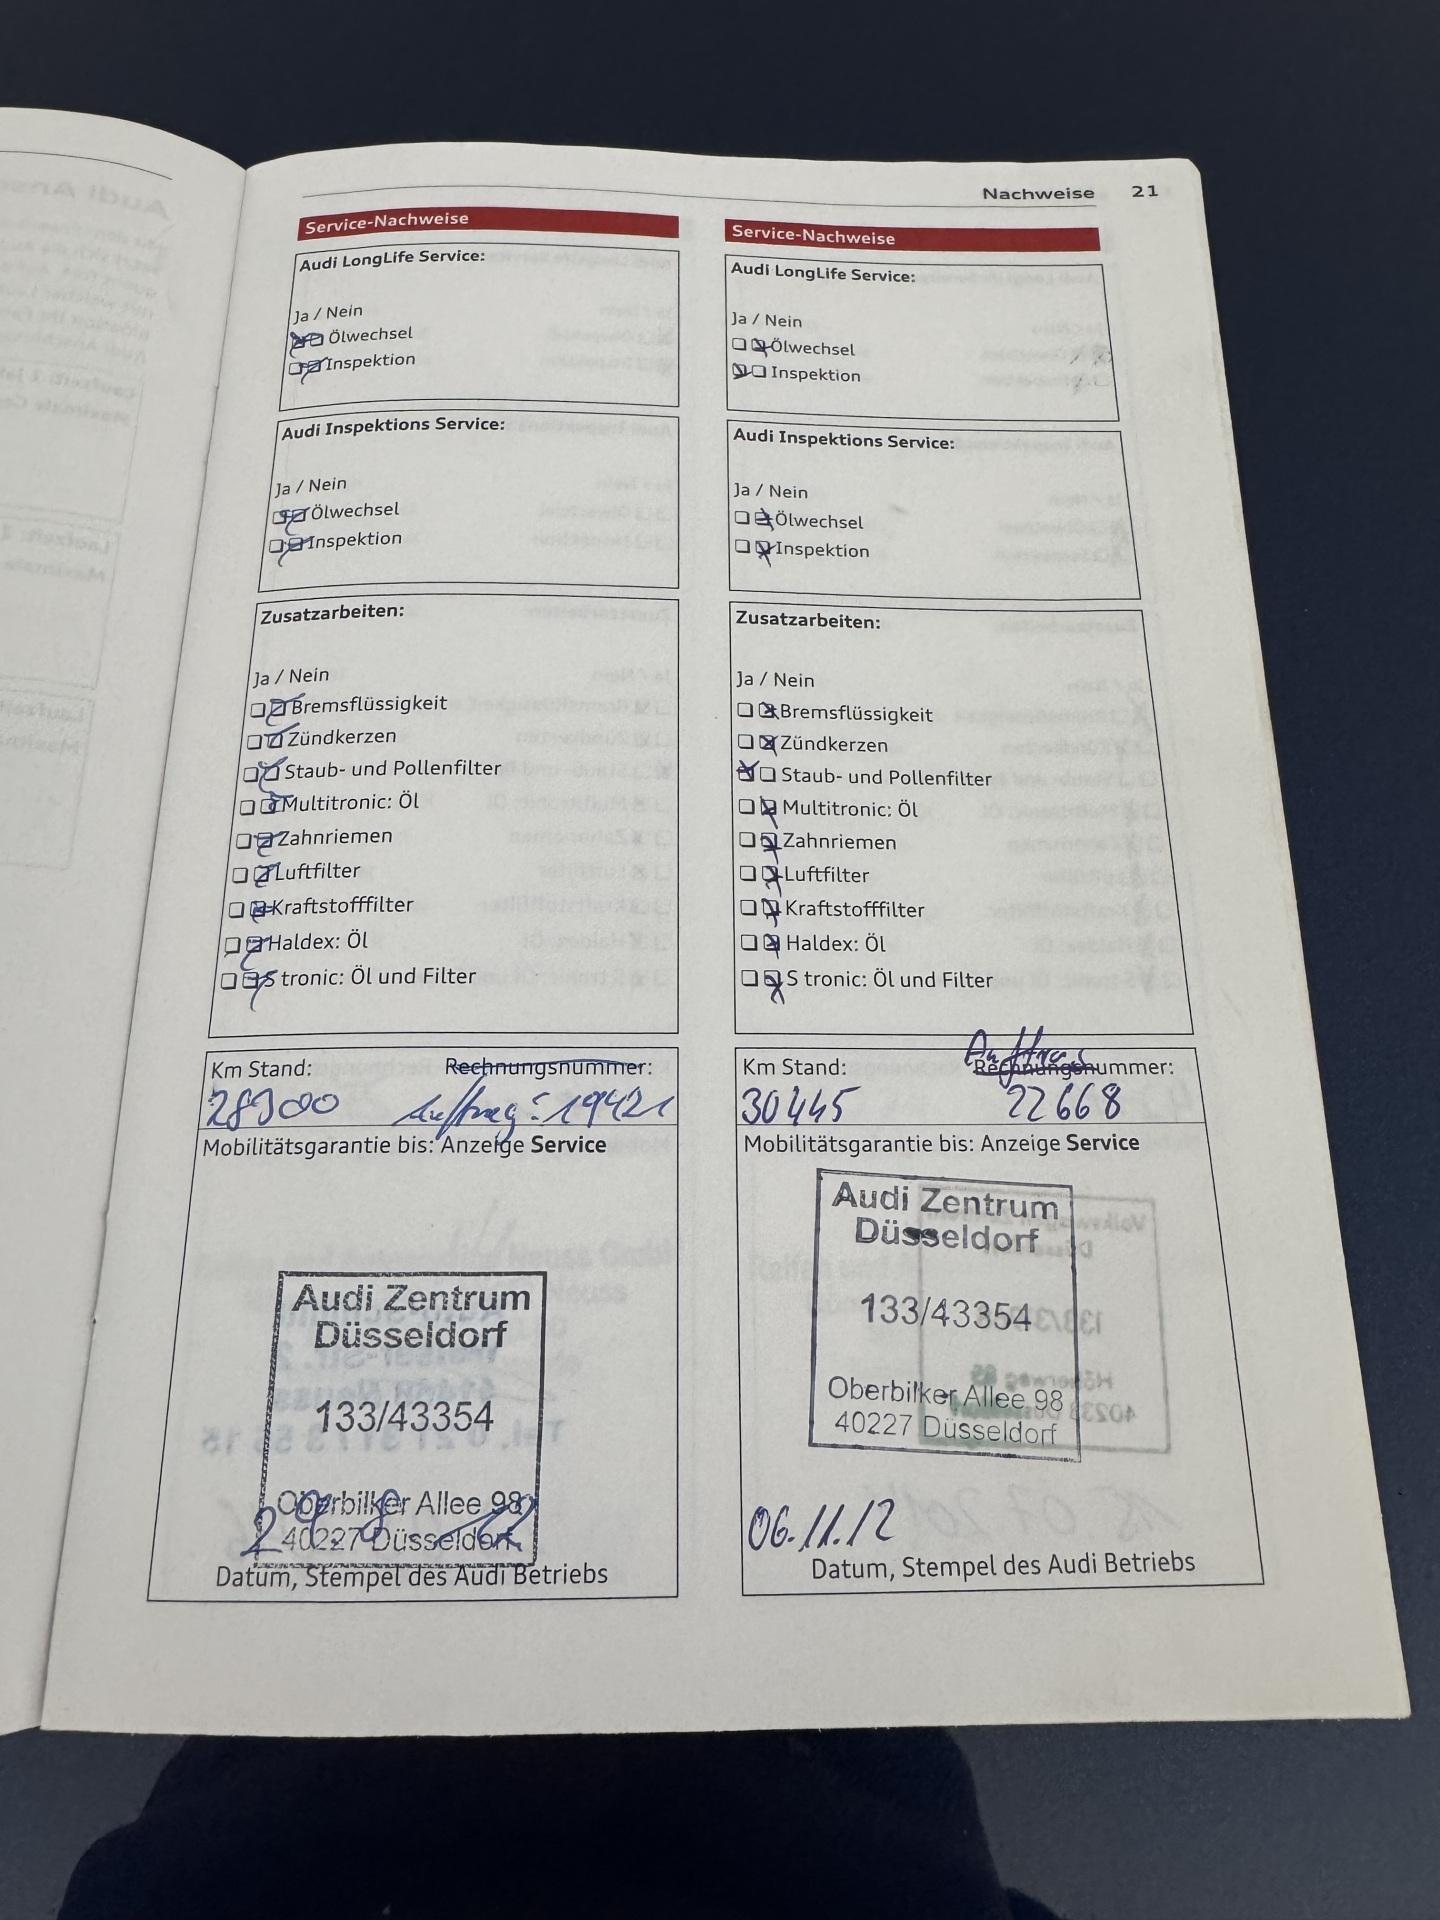 Nachweise 21
Service-Nachweise
Audi LongLife Service:
Ja / Nein
Ölwechsel
Inspektion
Audi Inspektions Service:
Ja / Nein
Ölwechsel
Inspektion
Zusatzarbeiten:
Ja / Nein
Bremsflüssigkeit
Zündkerzen
Staub- und Pollenfilter
Multitronic: Öl
Zahnriemen
Luftfilter
Kraftstofffilter
Haldex: Öl
S tronic: Öl und Filter
Km Stand: Rechnungsnummer:
28900 Auftrag: 19421
Mobilitätsgarantie bis: Anzeige Service
Audi Zentrum
Düsseldorf
133/43354
Oberbilker Allee 98
40227 Düsseldorf
29.8.12
Datum, Stempel des Audi Betriebs
Service-Nachweise
Audi LongLife Service:
Ja / Nein
Ölwechsel
Inspektion
Audi Inspektions Service:
Ja / Nein
Ölwechsel
Inspektion
Zusatzarbeiten:
Ja / Nein
Bremsflüssigkeit
Zündkerzen
Staub- und Pollenfilter
Multitronic: Öl
Zahnriemen
Luftfilter
Kraftstofffilter
Haldex: Öl
S tronic: Öl und Filter
Auftrag
Km Stand: Rechnungsnummer:
30445 22668
Mobilitätsgarantie bis: Anzeige Service
Audi Zentrum
Düsseldorf
133/43354
Oberbilker Allee 98
40227 Düsseldorf
06.11.12
Datum, Stempel des Audi Betriebs